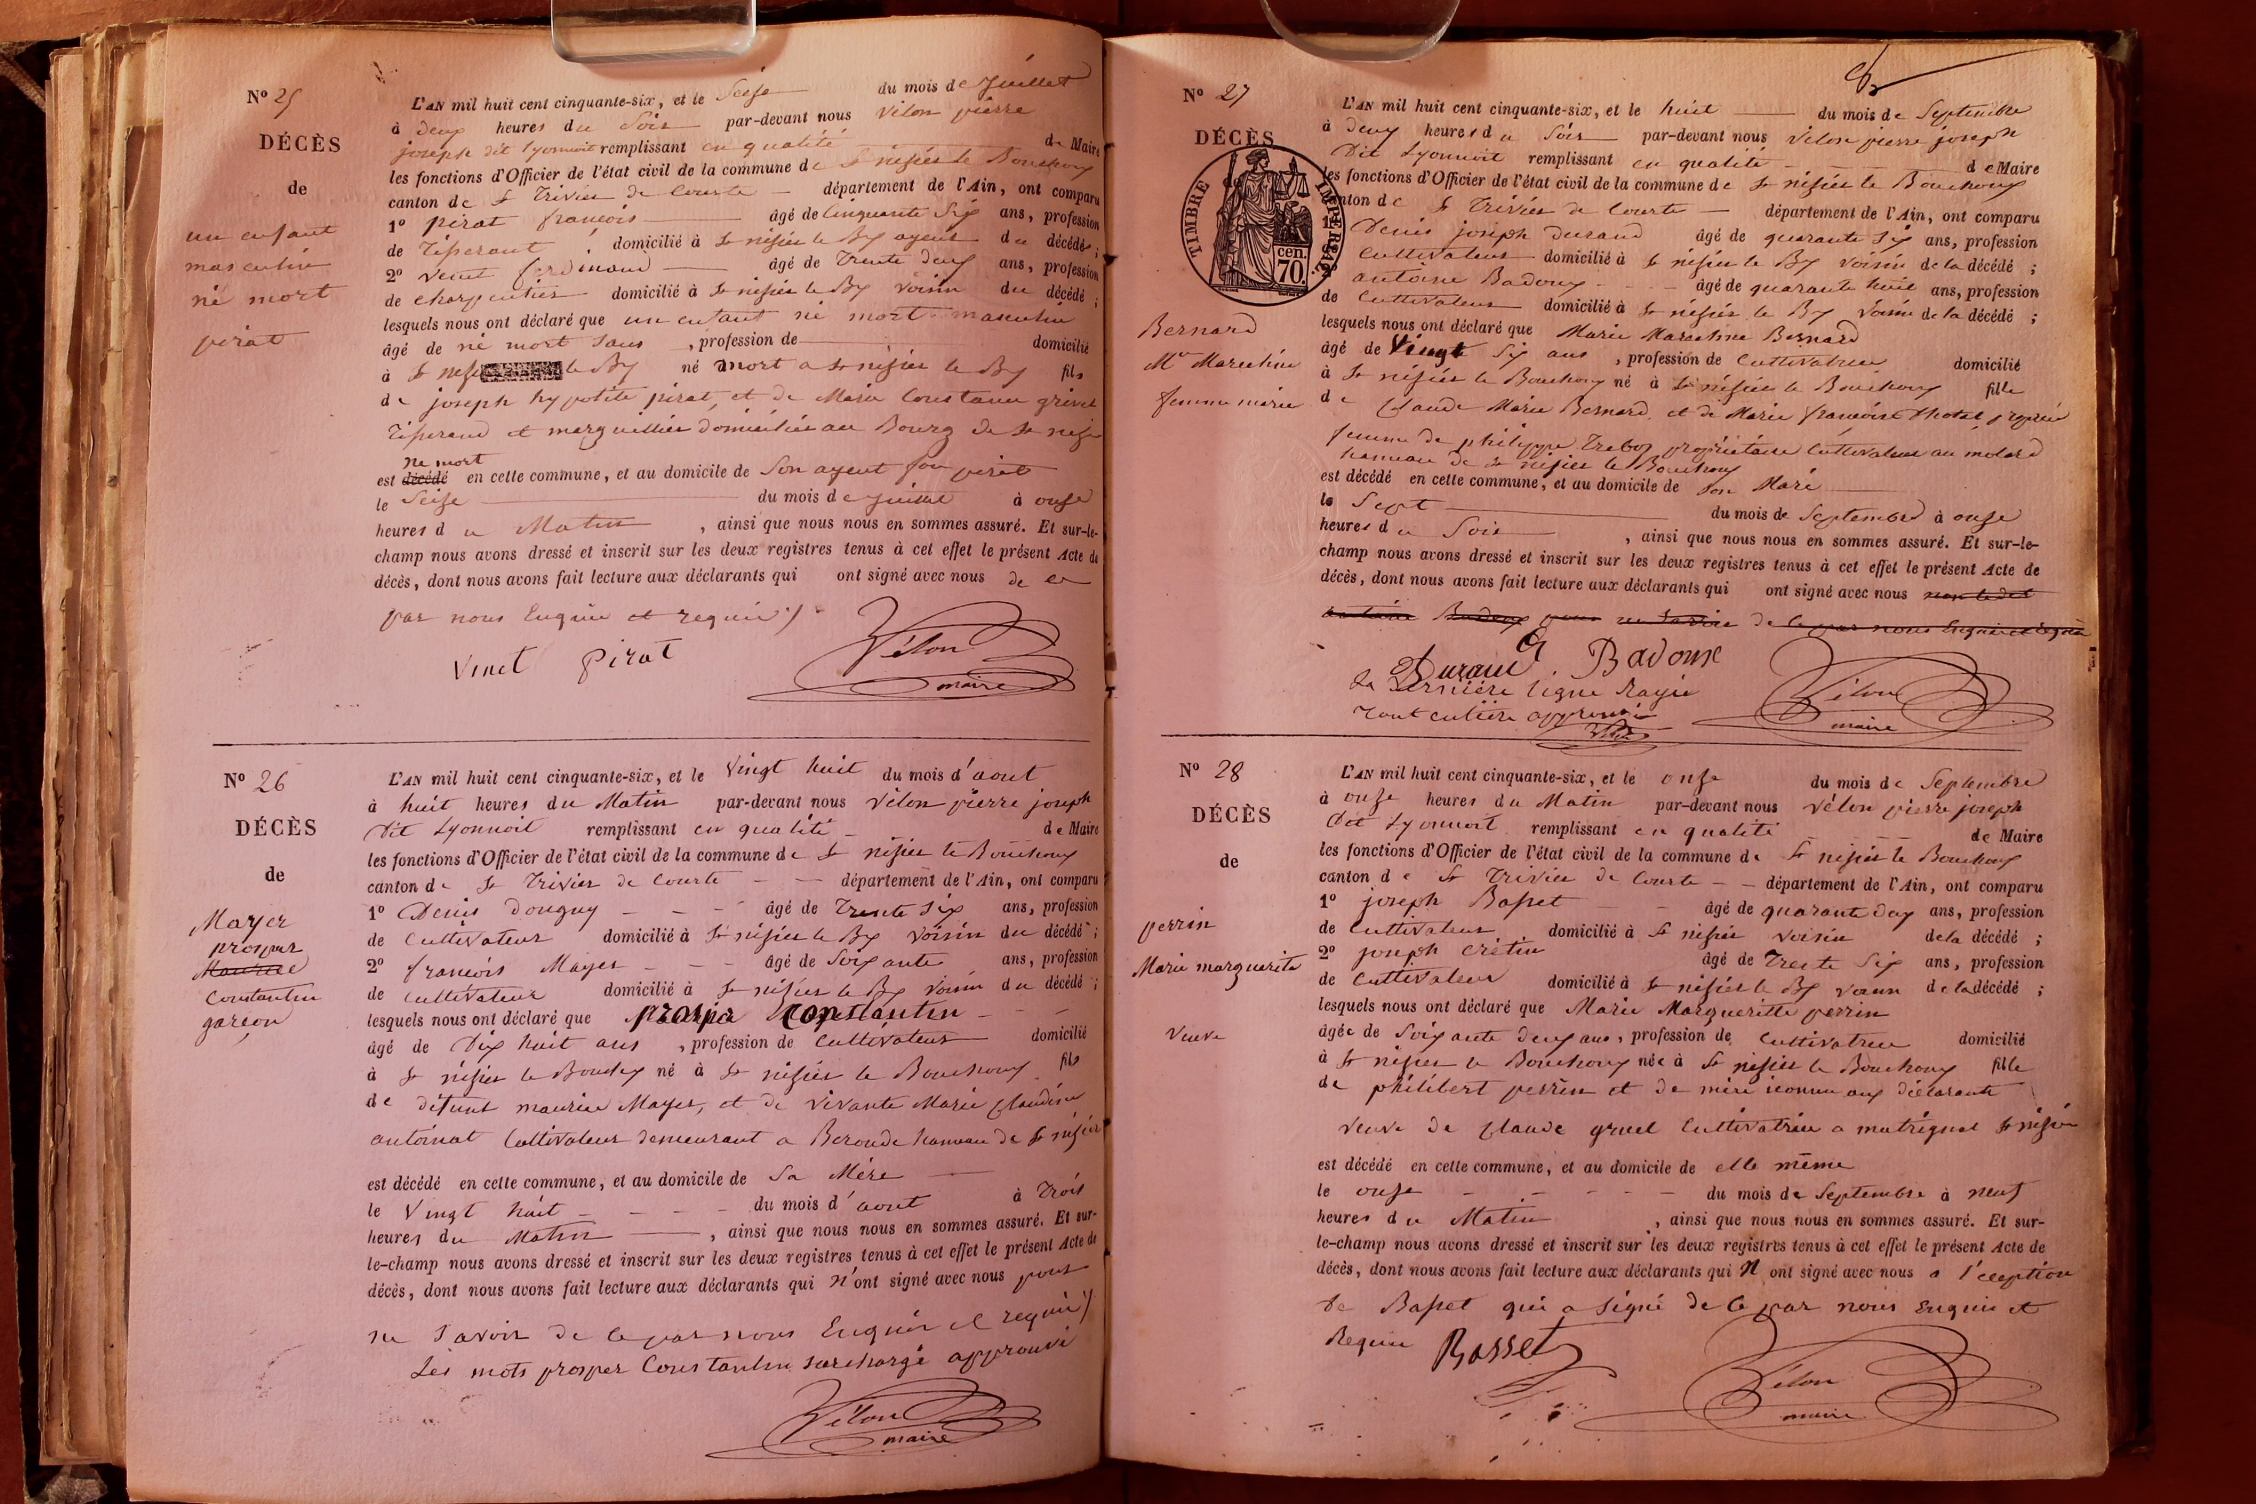 Nº 25
DÉCÈS
de
un enfant
masculin
né mort
pirat
L'AN mil huit cent cinquante-six, et le Seize du mois de Juillet
à deux heures du Soir par-devant nous Vélon pierre
joseph dit Lyonnoit remplissant en qualité de Maire
les fonctions d'Officier de l'état civil de la commune de St nisier le Bouchoux
canton de St Trivier de Courte département de l'Ain, ont comparu
1º pirat françois âgé de Cinquante Six ans, profession
de Tisserant, domicilié à St nisier le Bx ayeul du décédé;
2º Vinet ferdinand âgé de Trente deux ans, profession
de charpentier domicilié à St nisier le Bx voisin du décédé;
lesquels nous ont déclaré que un enfant né mort masculin
âgé de né mort Sans, profession de domicilié
à St nisier le Bx né mort a St nisier le Bx fils
de joseph hypolite pirat, et de Marie Constance grivet
Tisserand et marguillier domicilier au Bourg de St nisier
né mort
est décédé en cette commune, et au domicile de Son ayeul fois pirat
le Seize du mois de Juillet à onze
heures du Matin, ainsi que nous nous en sommes assuré. Et sur-le-
champ nous avons dressé et inscrit sur les deux registres tenus à cet effet le présent Acte de
décès, dont nous avons fait lecture aux déclarants qui ont signé avec nous de ce
par nous Enquie et requie
Vinet pirat Vélon
maire
Nº 26
DÉCÈS
de
Mayer
prosper
Maurice
Constantin
garçon
L'AN mil huit cent cinquante-six, et le Vingt huit du mois d'aout
à huit heures du Matin par-devant nous Vélon pierre joseph
Dit Lyonnoit remplissant en qualité de Maire
les fonctions d'Officier de l'état civil de la commune de St nisier le Bouchoux
canton de St Trivier de Courte département de l'Ain, ont comparu
1º Denis Donguy âgé de Trente Six ans, profession
de Cultivateur domicilié à St nisier le Bx voisin du décédé;
2º françois Mayer âgé de Soixante ans, profession
de Cultivateur domicilié à St nisier le Bx voisin du décédé;
lesquels nous ont déclaré que prosper Constantin
âgé de Dix huit ans, profession de Cultivateur domicilié
à St nisier le Bouchx né à St nisier le Bouchoux fils
de défunt maurice Mayer, et de vivante Marie Claudine
antoinat Cultivateur demeurant a Beronde hameau de St nisier
est décédé en cette commune, et au domicile de Sa Mère
le Vingt huit du mois d'aout à Trois
heures du Matin, ainsi que nous nous en sommes assuré. Et sur-
le-champ nous avons dressé et inscrit sur les deux registres tenus à cet effet le présent Acte de
décès, dont nous avons fait lecture aux déclarants qui n'ont signé avec nous pour
ne Savoir de ce par nous Enquie et requie
Les mots prosper Constantin surchargé approuvé
Vélon
maire
Nº 27
DÉCÈS
de
TIMBRE IMPERIAL
70 cen.
Bernard
Mie Marceline
femme marié
L'AN mil huit cent cinquante-six, et le huit du mois de Septembre
à deux heures du Soir par-devant nous Vélon pierre joseph
Dit Lyonnoit remplissant en qualité de Maire
les fonctions d'Officier de l'état civil de la commune de St nisier le Bouchoux
canton de St Trivier de Courte département de l'Ain, ont comparu
1º Denis joseph Durand âgé de quarante Six ans, profession
Cultivateur domicilié à St nisier le Bx voisin de la décédé;
antoine Badoux âgé de quarante huit ans, profession
de Cultivateur domicilié à St nisier le Bx voisin de la décédé;
lesquels nous ont déclaré que Marie Marceline Bernard
âgé de Vingt Six ans, profession de Cultivatrice domicilié
à St nisier le Bouchoux né à St nisier le Bouchoux fille
de Claude Marie Bernard et de Marie françoise
femme de philippe propriétaire Cultivateur au molard
hameau de St nisier le Bouchoux
est décédé en cette commune, et au domicile de son Mari
le Sept du mois de Septembre à onze
heures du Soir, ainsi que nous nous en sommes assuré. Et sur-le-
champ nous avons dressé et inscrit sur les deux registres tenus à cet effet le présent Acte de
décès, dont nous avons fait lecture aux déclarants qui ont signé avec nous
Badoux pour ne Savoir de ce par nous Enquie et requie
Durand Badoux
La Dernière ligne Rayée
tout entière approuvé
Vélon
maire
Nº 28
DÉCÈS
de
perrin
Marie marguerite
Veuve
L'AN mil huit cent cinquante-six, et le onze du mois de Septembre
à onze heures du Matin par-devant nous Vélon pierre joseph
Dit Lyonnoit remplissant en qualité de Maire
les fonctions d'Officier de l'état civil de la commune de St nisier le Bouchoux
canton de St Trivier de Courte département de l'Ain, ont comparu
1º joseph Basset âgé de quarante deux ans, profession
de Cultivateur domicilié à St nisier voisin de la décédé;
2º joseph Crétin âgé de Trente Six ans, profession
de Cultivateur domicilié à St nisier le Bx voisin de la décédé;
lesquels nous ont déclaré que Marie Margueritte perrin
âgée de Soixante deux ans, profession de Cultivatrice domicilié
à St nisier le Bouchoux née à St nisier le Bouchoux fille
de philibert perrin et de mère iconnu aux déclarants
veuve de Claude gruel Cultivatrice a matrignat St nisier
est décédé en cette commune, et au domicile de elle même
le onze du mois de Septembre à neuf
heures du Matin, ainsi que nous nous en sommes assuré. Et sur-
le-champ nous avons dressé et inscrit sur les deux registres tenus à cet effet le présent Acte de
décès, dont nous avons fait lecture aux déclarants qui n ont signé avec nous a l'ception
de Basset qui a Signé de ce par nous Enquie et
Requie Basset
Vélon
maire